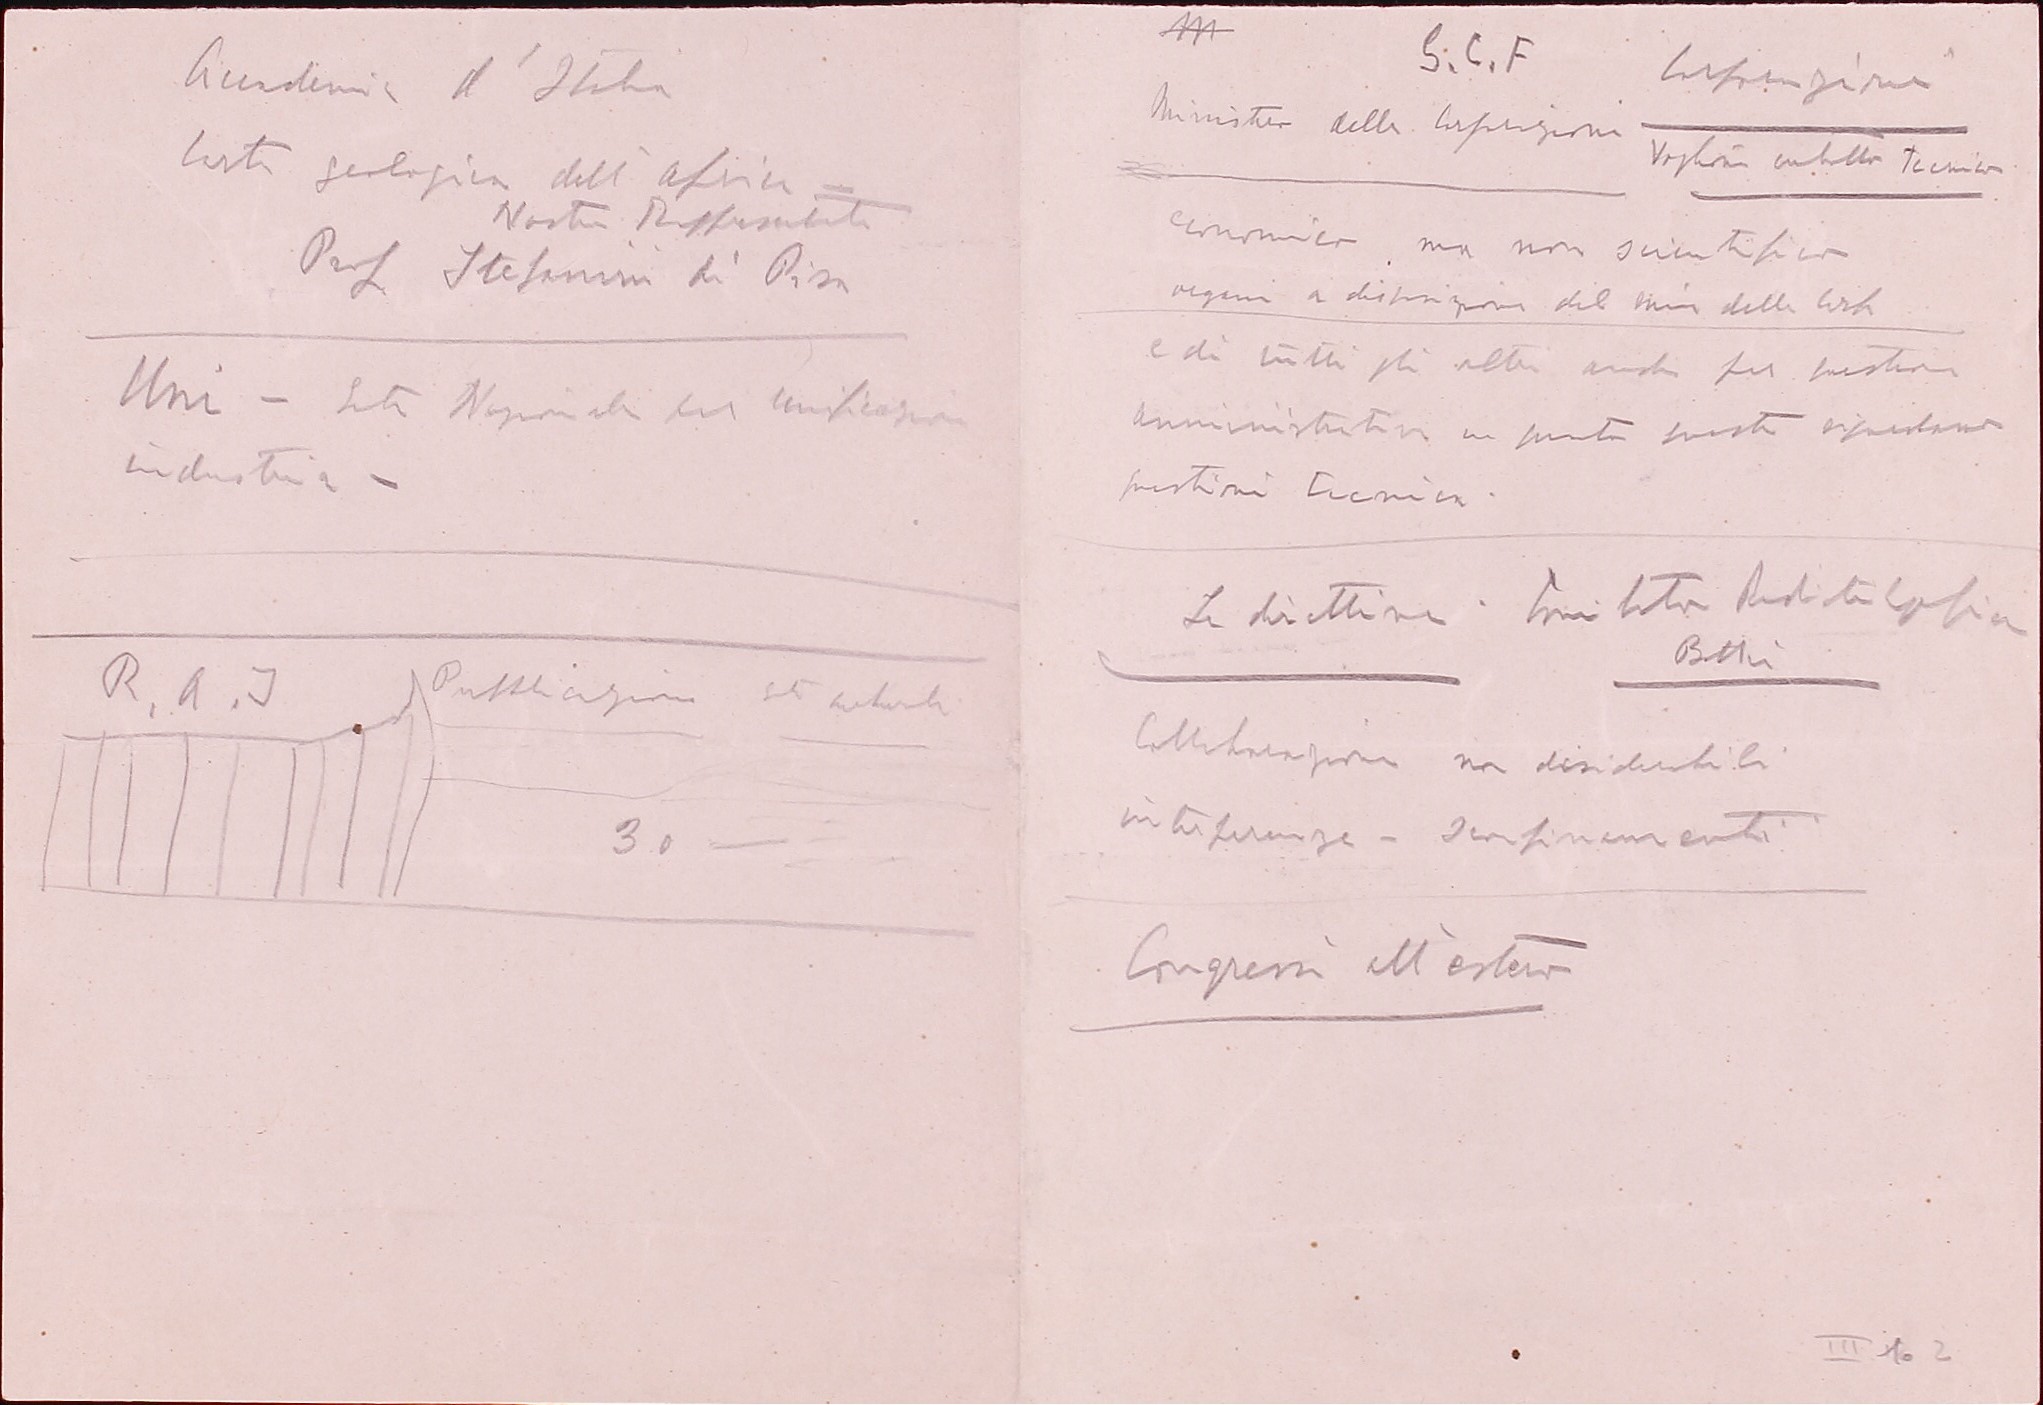 Accademia d'Italia
Carta geologica dell'Africa =
Nostro Rappresentante
Prof Stefanini di Pisa
Uni - Ente Nazionale per unificazione
industria -
R.A.I Pubblicazione
30 —
G.C.F Corporazione
Ministero delle Corporazioni
Vogliono contatto tecnico
economico, ma non scientifico
organi a disposizione del Min delle Corp
e di tutti gli altri anche per questioni
amministrative in quanto queste riguardano
questioni tecnica.
Le direttive. Comitato Radiotelegrafia
Collaborazione non desiderabili
interferenze - sconfinamenti
Congressi all'estero
III 2